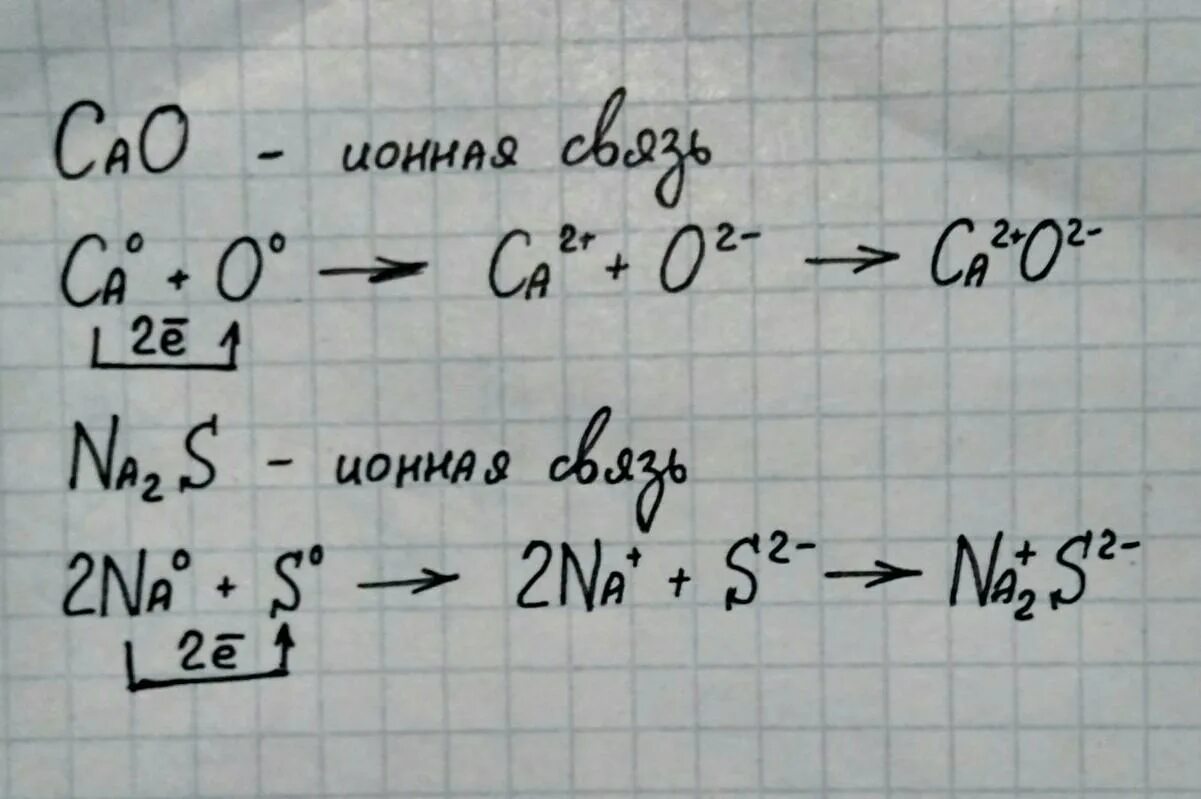 CaO - ионная связь
Ca⁰ + O⁰ → Ca²⁺ + O²⁻ → Ca²⁺O²⁻
2ē
Na₂S - ионная связь
2Na⁰ + S⁰ → 2Na⁺ + S²⁻ → Na₂⁺S²⁻
2ē